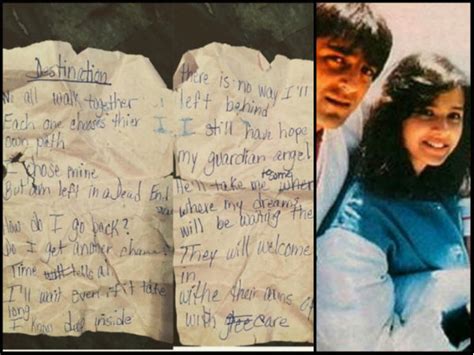 Destination
We all walk together
Each one chooses thier
own path
I chose mine
But am left in a Dead End
How do I go back?
Do I get another chan
Time will tells al
I'll wait even if it take
long
I know deep inside
there is no way I'll
left behind
I still have hope
my guardian angel
He'll take me
where my dreams
will be waiting
They will welcome
in
withe their arms of
with care